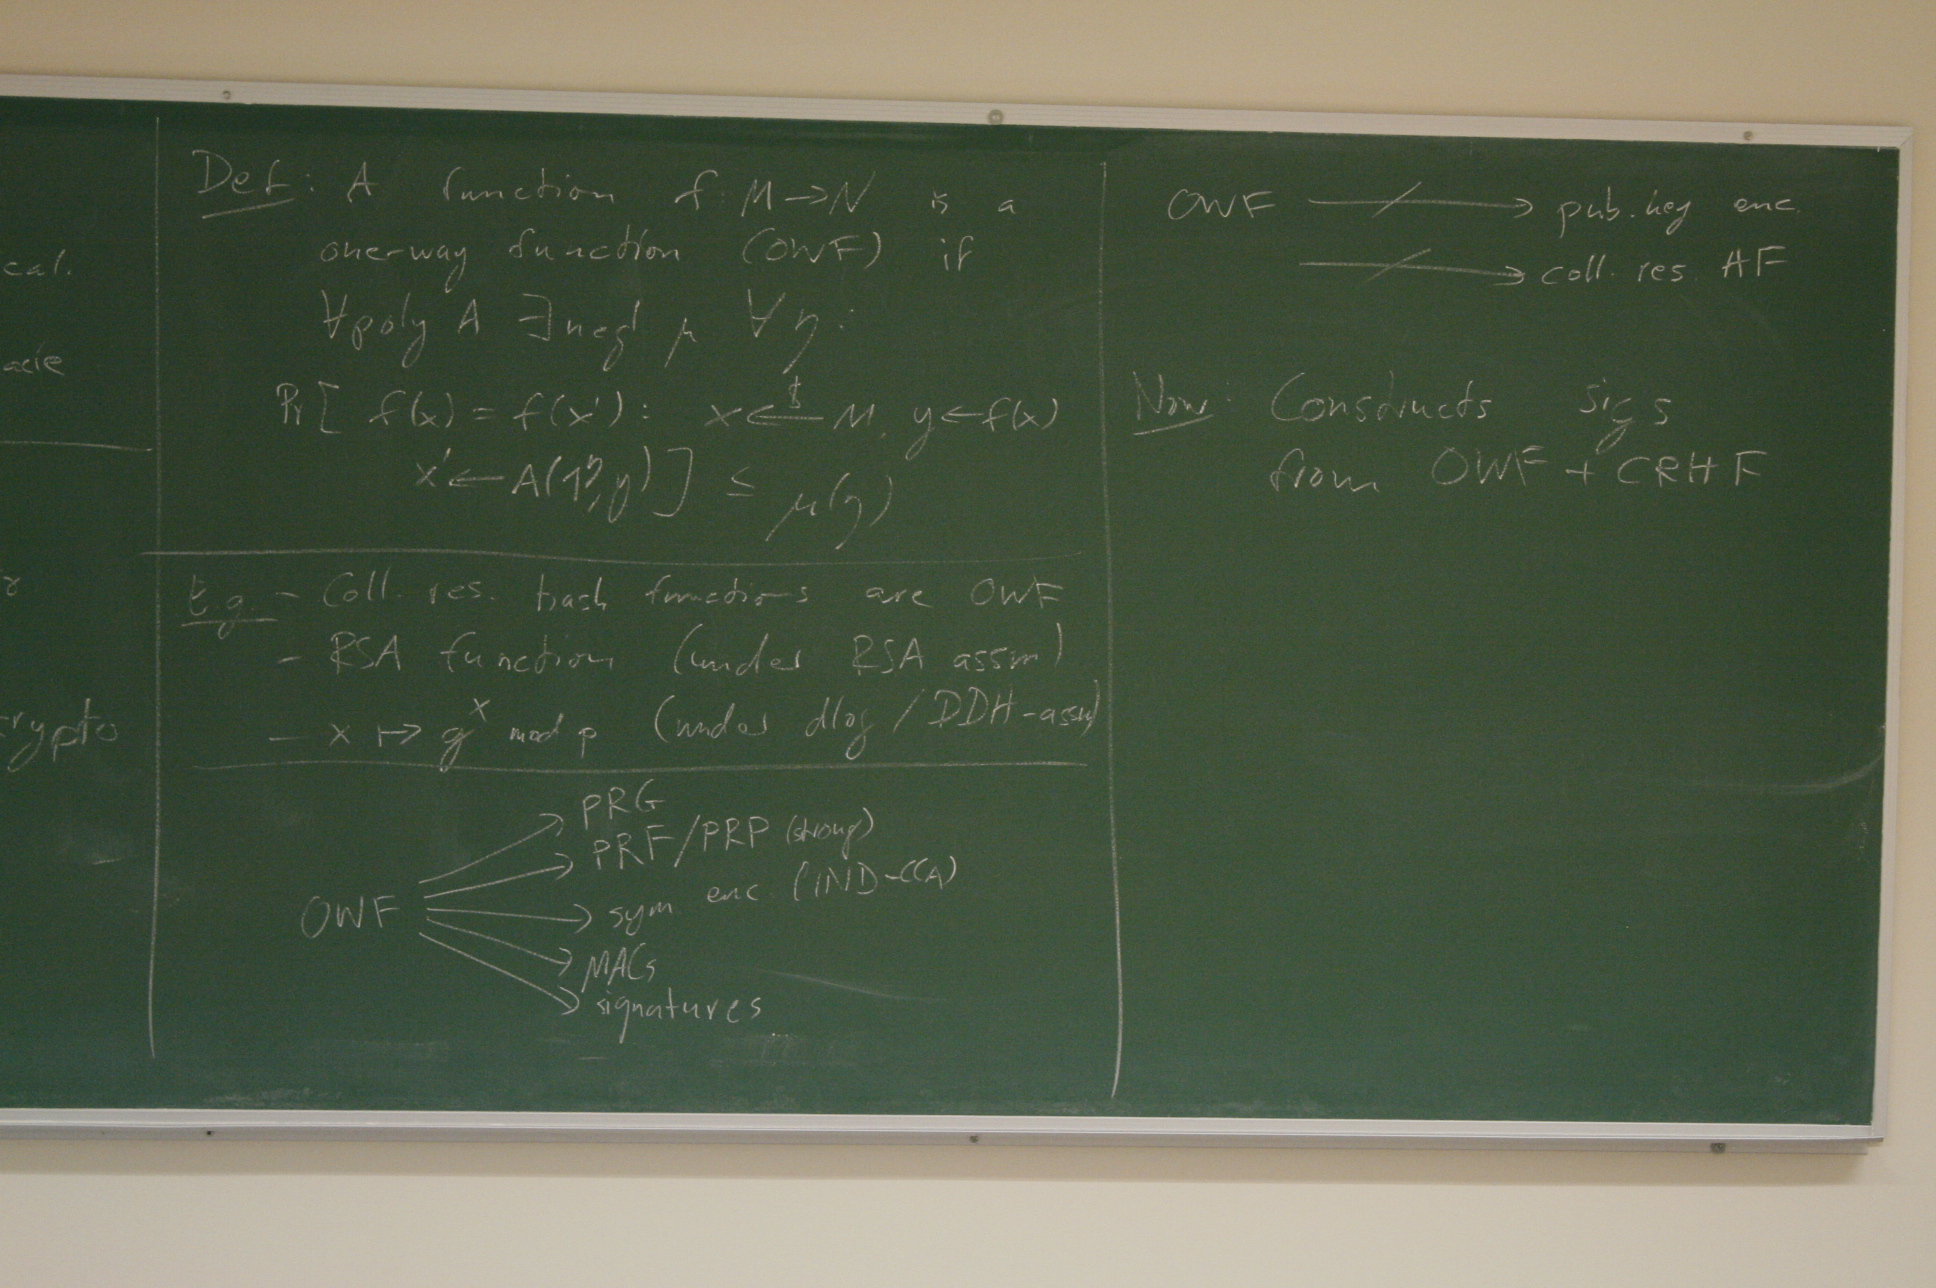 cal.
crypto
Def: A function f: M→N is a
one-way function (OWF) if
∀poly A ∃negl μ ∀η:
Pr[ f(x) = f(x'): x ←$ M, y←f(x)
x'←A(1^η, y) ] ≤ μ(η)
E.g. - Coll. res. hash functions are OWF
- RSA function (under RSA assm)
- x ↦ g^x mod p (under dlog / DDH-assm)
OWF
→ PRG
→ PRF/PRP (strong)
→ sym enc. (IND-CCA)
→ MACs
→ signatures
OWF ↛ pub. key enc.
↛ coll. res. HF
Now: Constructs sigs
from OWF + CRHF